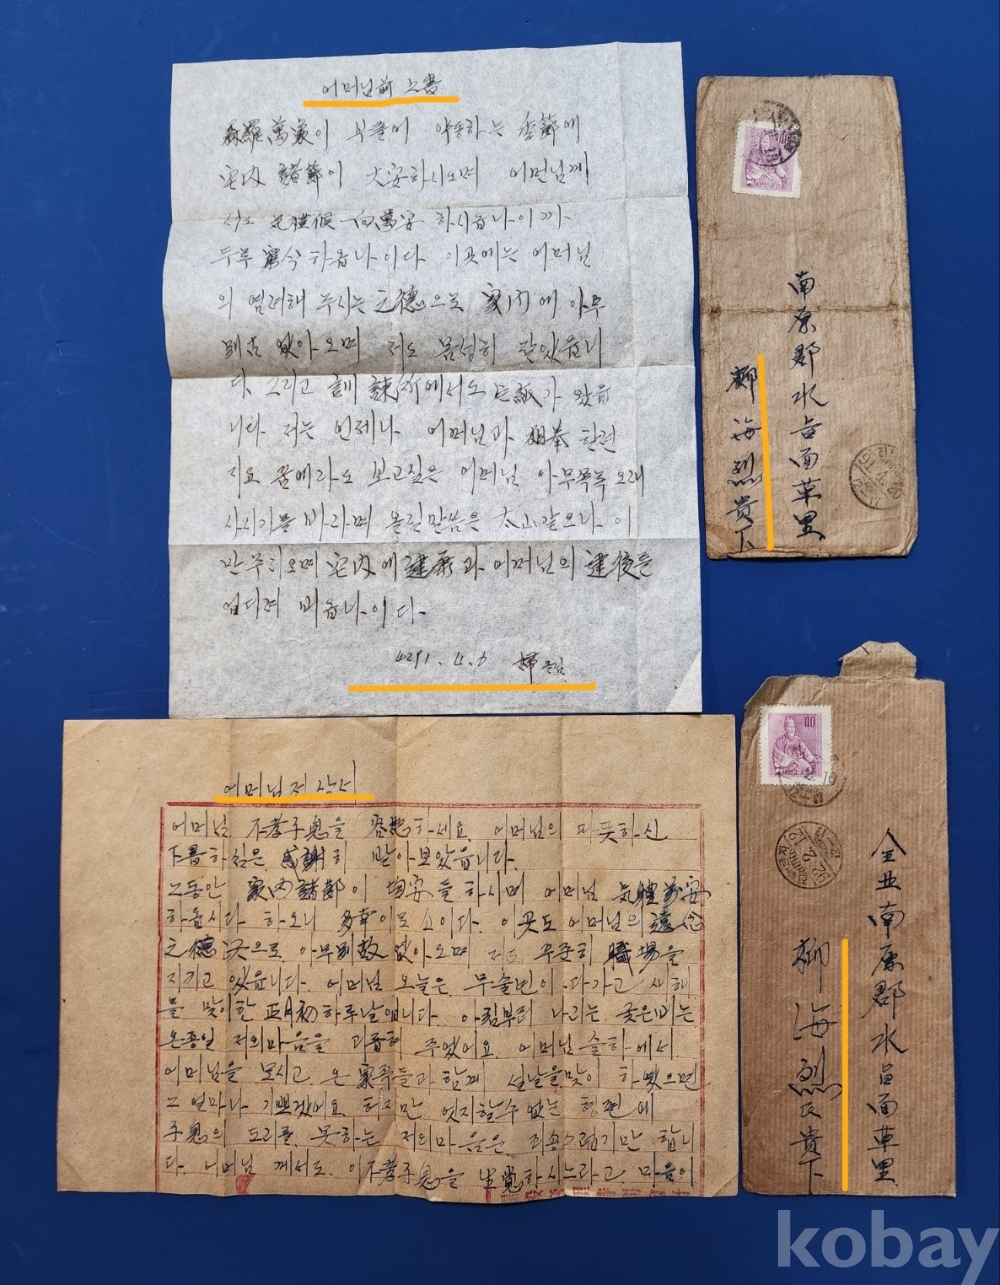 어머님前 上書
森羅萬象이 모름이 약동하는 季節에
宅內 諸節이 大安하시오며 어머님께
서도 一向萬安 하시옵나이까
하옵나이다 이곳에는 어머님
의 염려해 주시는 之德으로 家內에 아무
別古 없아오며 저도 몸성히 잘있읍니
다 그리고 訓鍊所에서도 편紙가 왔읍
니다 저는 언제나 어머님과
꿈에라도 보고싶은 어머님 아무쪼록 오래
사시기를 바라며 올릴말씀은 太山같으나 이
만 주리오며 宅內에 建康과 어머님의 建後를
엎디려 비옵나이다
4291. 4. 3
어머님전 상서
어머님 不孝子息을 容恕하세요 어머님의 따뜻하신
下書하심은 感謝히 받아보았읍니다.
그동안 家內諸節이 均安을 하시며 어머님 氣體萬安
하옵시다 하오니 多幸이로소이다. 이곳도 어머님의 遠念
之德澤으로 아무別故 없아오며 저도 꾸준히 職場을
지키고 있읍니다. 어머님 오늘은 무술년이 다가고 새해
를 맞이한 正月初하루날입니다. 아침부터 나리는 궂은비는
온종일 저의마음을 괴롭혀 주었어요. 어머님 슬하에서
어머님을 모시고 온 家族들과 함께 설날을맞이 하였으면
그 얼마나 기뻤겠어요. 허지만 엇지할수 없는 형편에
子息의 도리를 못하는 저의마음은 죄송스럽기만 합니
다. 어머님 께서도 이不孝子息을 生覺하시느라고 마음이
南原郡水旨面草里
柳海烈貴下
全北南原郡水旨面草里
柳海烈氏貴下
kobay